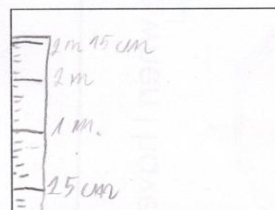 2m 15cm
2m
1m.
15cm